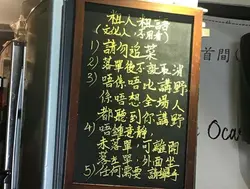 粗人粗語
(文化人,不用看)
1) 請勿追菜
2) 落單後不設取消
3) 唔係唔比講野
係唔想全場人
都聽到你講野
4) 唔鍾意靜,
未落單,可離開
落左單,外面坐
5) 任何需要,請舉手
首間
Oca